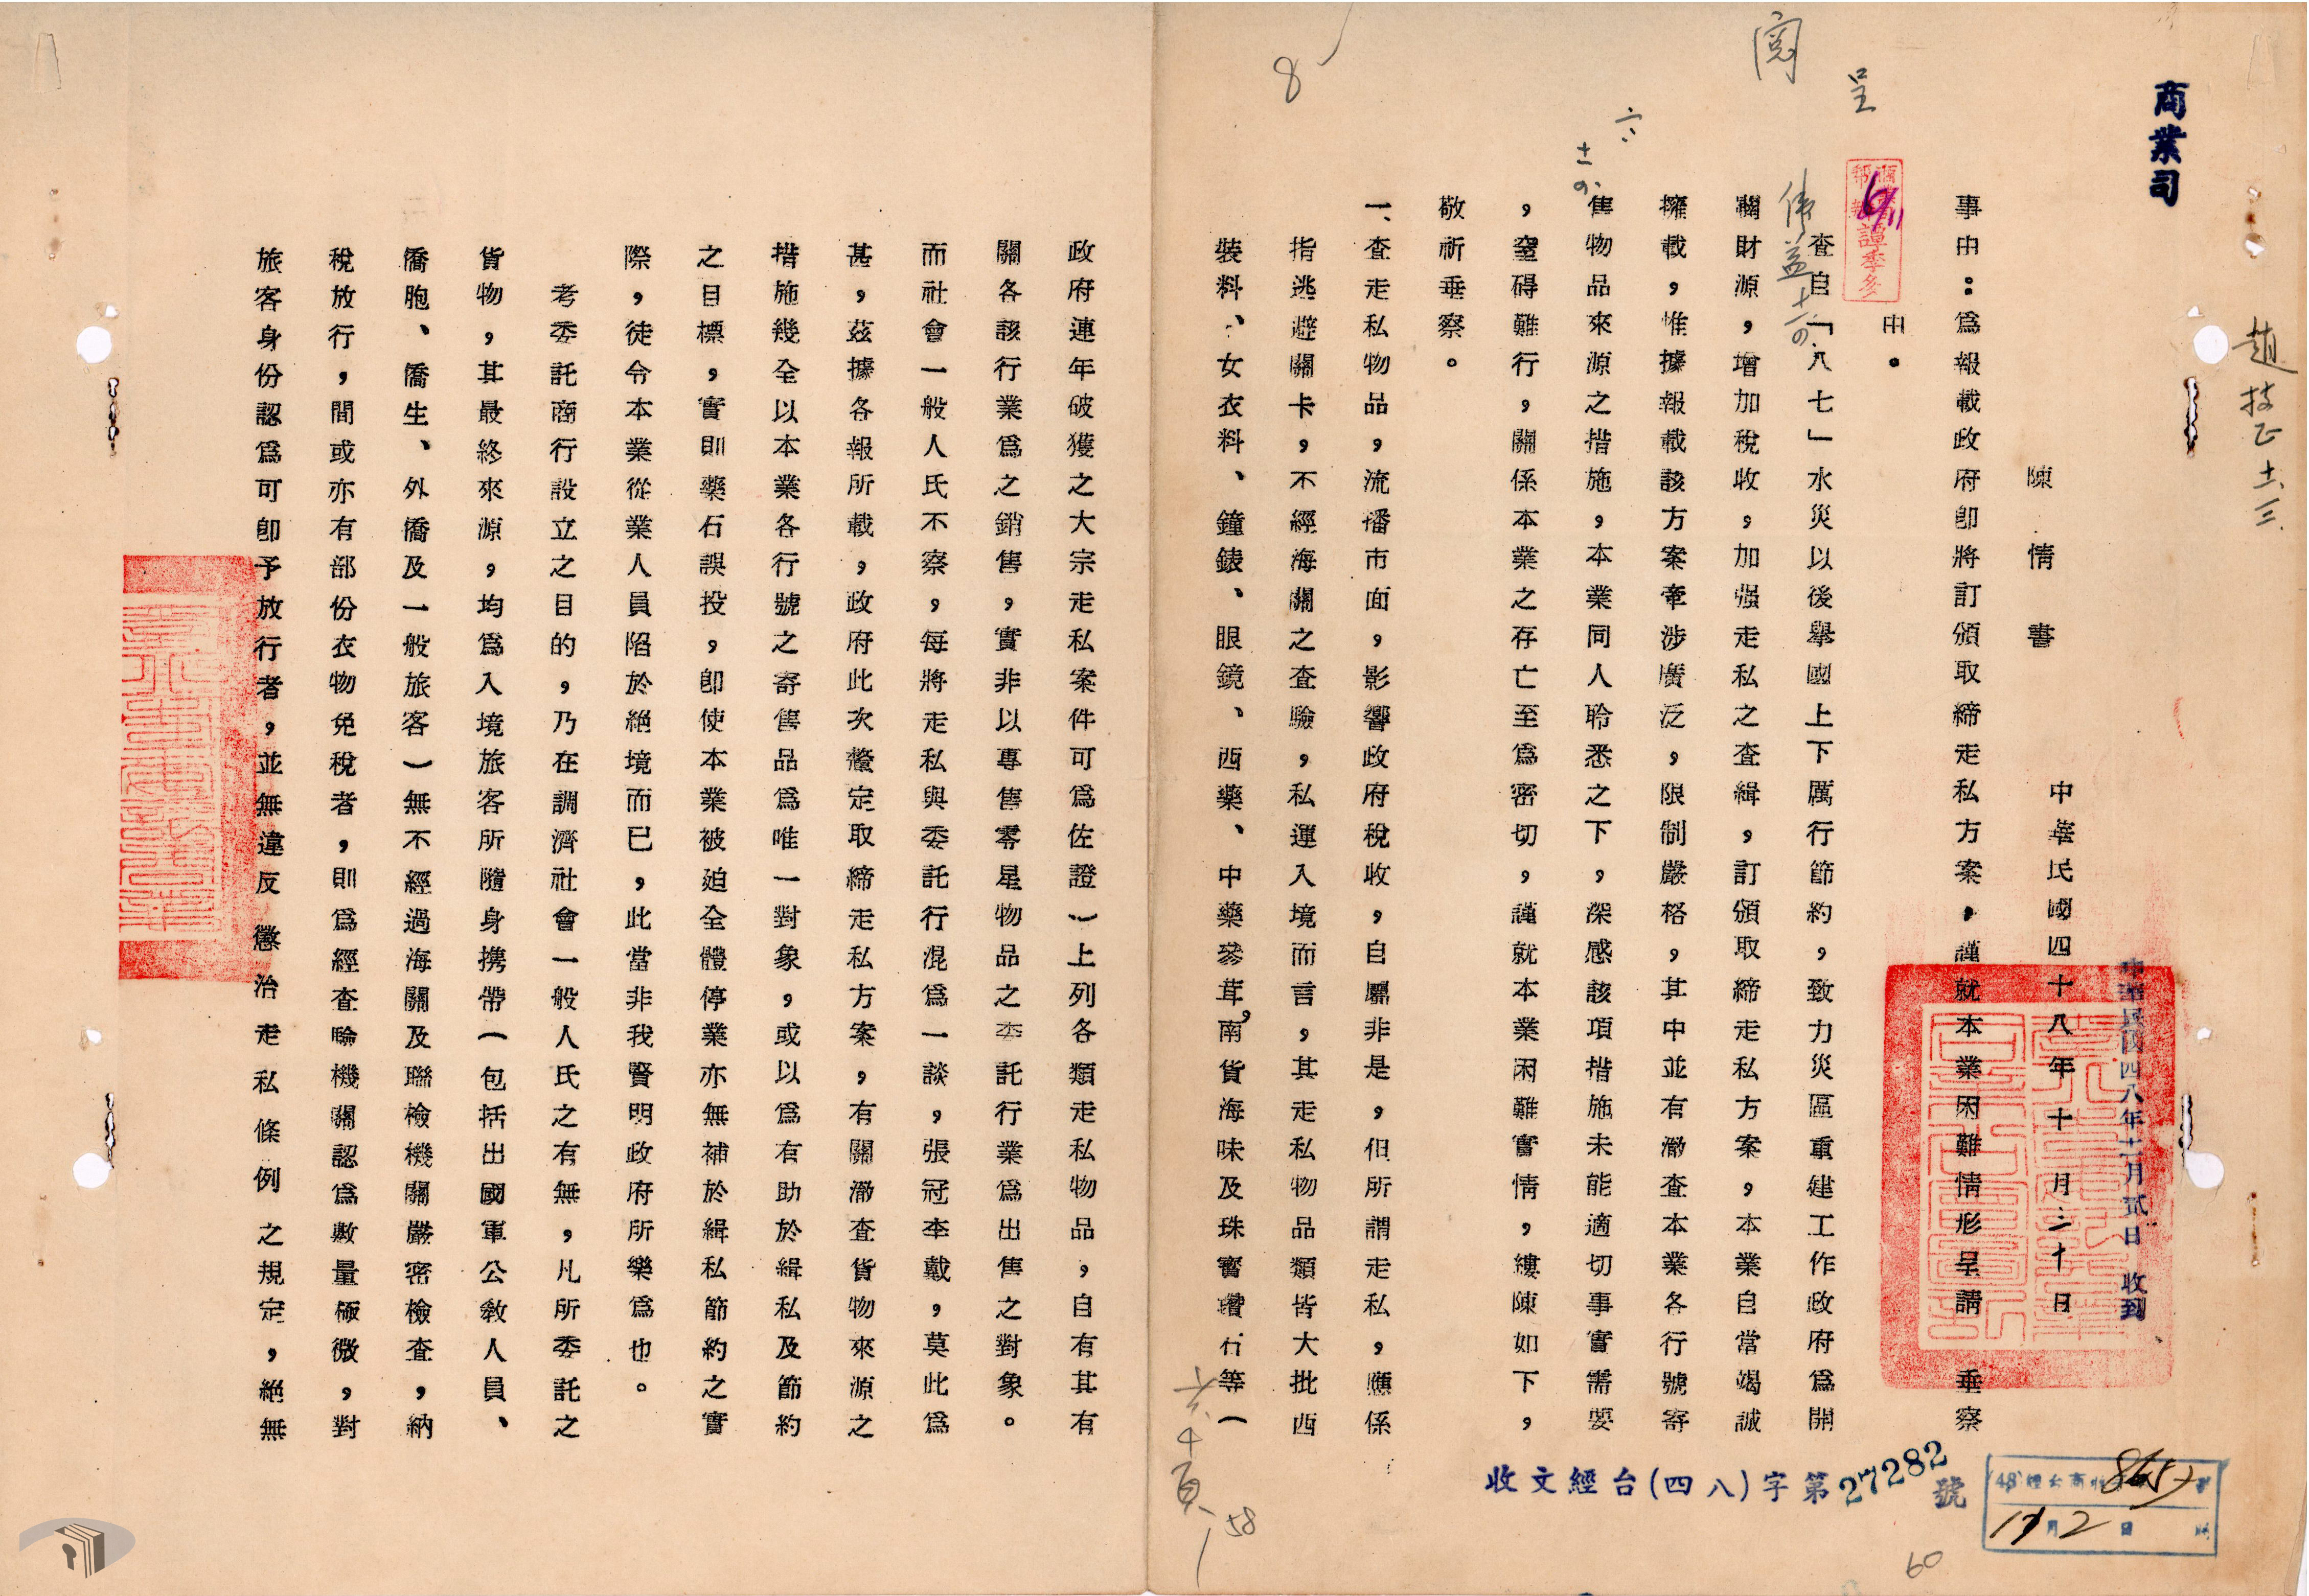 商業司
趙技正 十一、三
陳情書
中華民國四十八年十月三十日
中華民國四八年十一月貳日 收到
事由：為報載政府即將訂頒取締走私方案，謹就本業困難情形呈請 垂察
由。
呈
閱
查自「八七」水災以後舉國上下厲行節約，致力災區重建工作政府為開
闢財源，增加稅收，加强走私之查緝，訂頒取締走私方案，本業自當竭誠
擁載，惟據報載該方案牽涉廣泛，限制嚴格，其中並有澈查本業各行號寄
售物品來源之措施，本業同人聆悉之下，深感該項措施未能適切事實需要
，窒碍難行，關係本業之存亡至為密切，謹就本業困難實情，縷陳如下，
敬祈垂察。
一、查走私物品，流播市面，影響政府稅收，自屬非是，但所謂走私，應係
指逃避關卡，不經海關之查驗，私運入境而言，其走私物品類皆大批西
裝料、女衣料、鐘錶、眼鏡、西藥、中藥參茸，南貨海味及珠寶鑽石等（
政府連年破獲之大宗走私案件可為佐證）上列各類走私物品，自有其有
關各該行業為之銷售，實非以專售零星物品之委託行業為出售之對象。
而社會一般人民不察，每將走私與委託行混為一談，張冠李戴，莫此為
甚，茲據各報所載，政府此次釐定取締走私方案，有關澈查貨物來源之
措施幾全以本業各行號之寄售品為唯一對象，或以為有助於緝私及節約
之目標，實則藥石誤投，即使本業被迫全體停業亦無補於緝私節約之實
際，徒令本業從業人員陷於絕境而已，此當非我賢明政府所樂為也。
考委託商行設立之目的，乃在調濟社會一般人民之有無，凡所委託之
貨物，其最終來源，均為入境旅客所隨身携帶（包括出國軍公教人員、
僑胞、僑生、外僑及一般旅客）無不經過海關及聯檢機關嚴密檢查，納
稅放行，間或亦有部份衣物免稅者，則為經查驗機關認為數量極微，對
旅客身份認為可即予放行者，並無違反懲治走私條例之規定，絕無
收文經台(四八)字第27282號
8
58
60